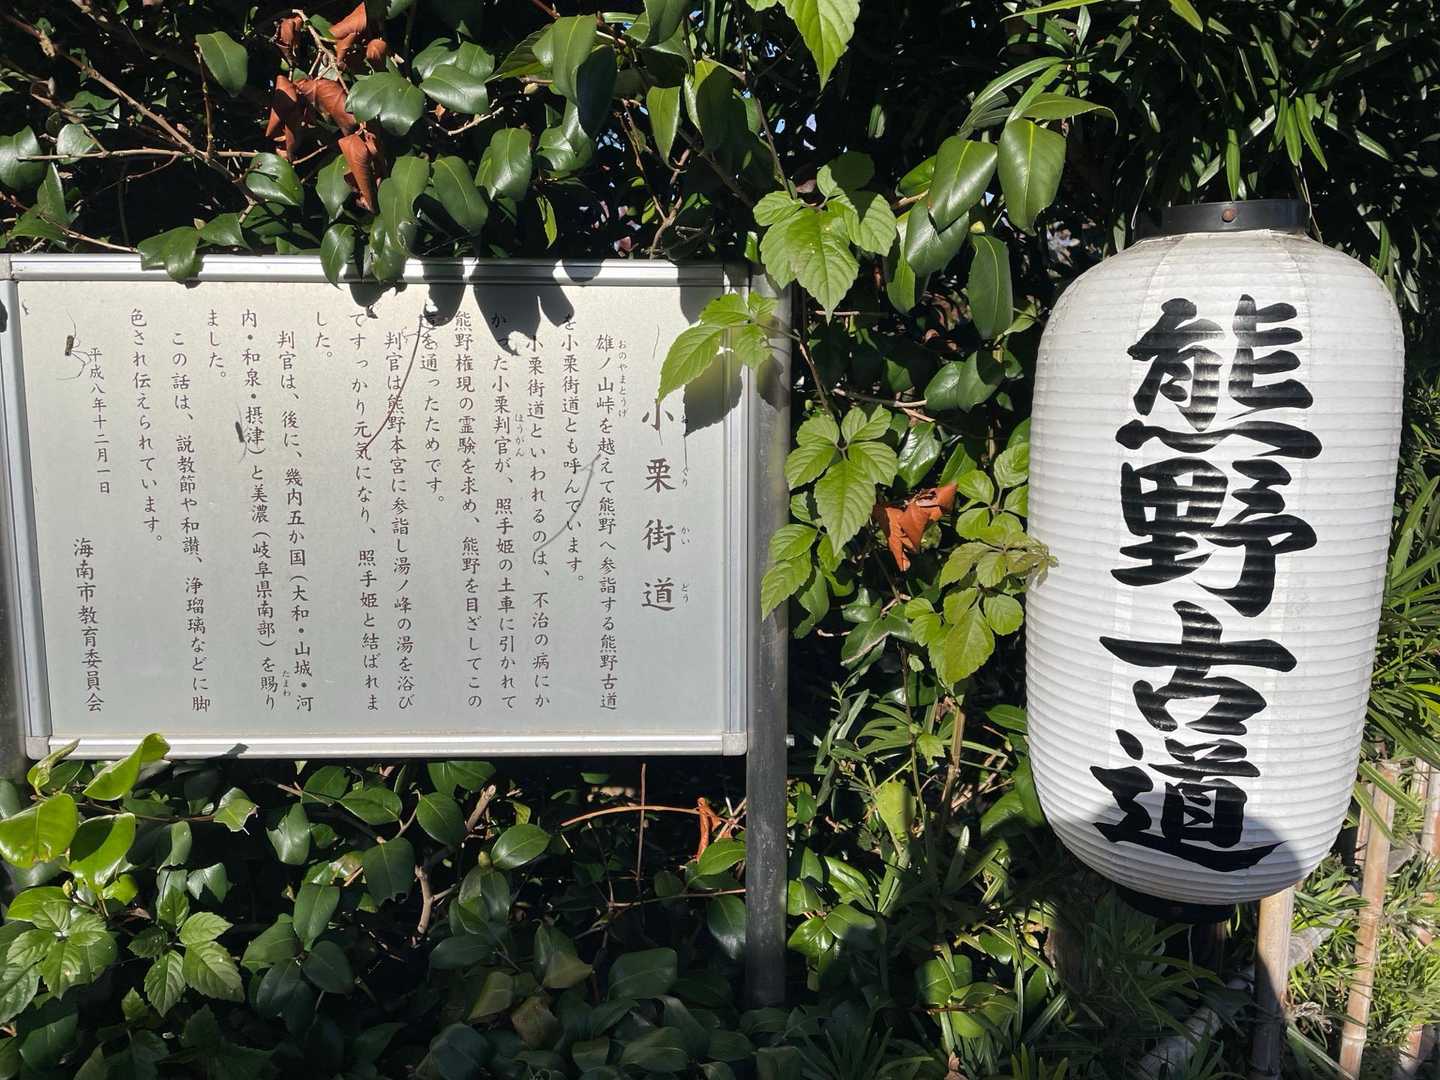 小栗街道
おぐり かい どう
雄ノ山峠を越えて熊野へ参詣する熊野古道
おのやまとうげ
を小栗街道とも呼んでいます。
小栗街道といわれるのは、不治の病にか
かった小栗判官が、照手姫の土車に引かれて
ほうがん
熊野権現の霊験を求め、熊野を目ざしてこの
を通ったためです。
判官は熊野本宮に参詣し湯ノ峰の湯を浴び
てすっかり元気になり、照手姫と結ばれま
した。
判官は、後に、幾内五か国（大和・山城・河
内・和泉・摂津）と美濃（岐阜県南部）を賜り
たまわ
ました。
この話は、説教節や和讃、浄瑠璃などに脚
色され伝えられています。
平成八年十二月一日
海南市教育委員会
熊野古道